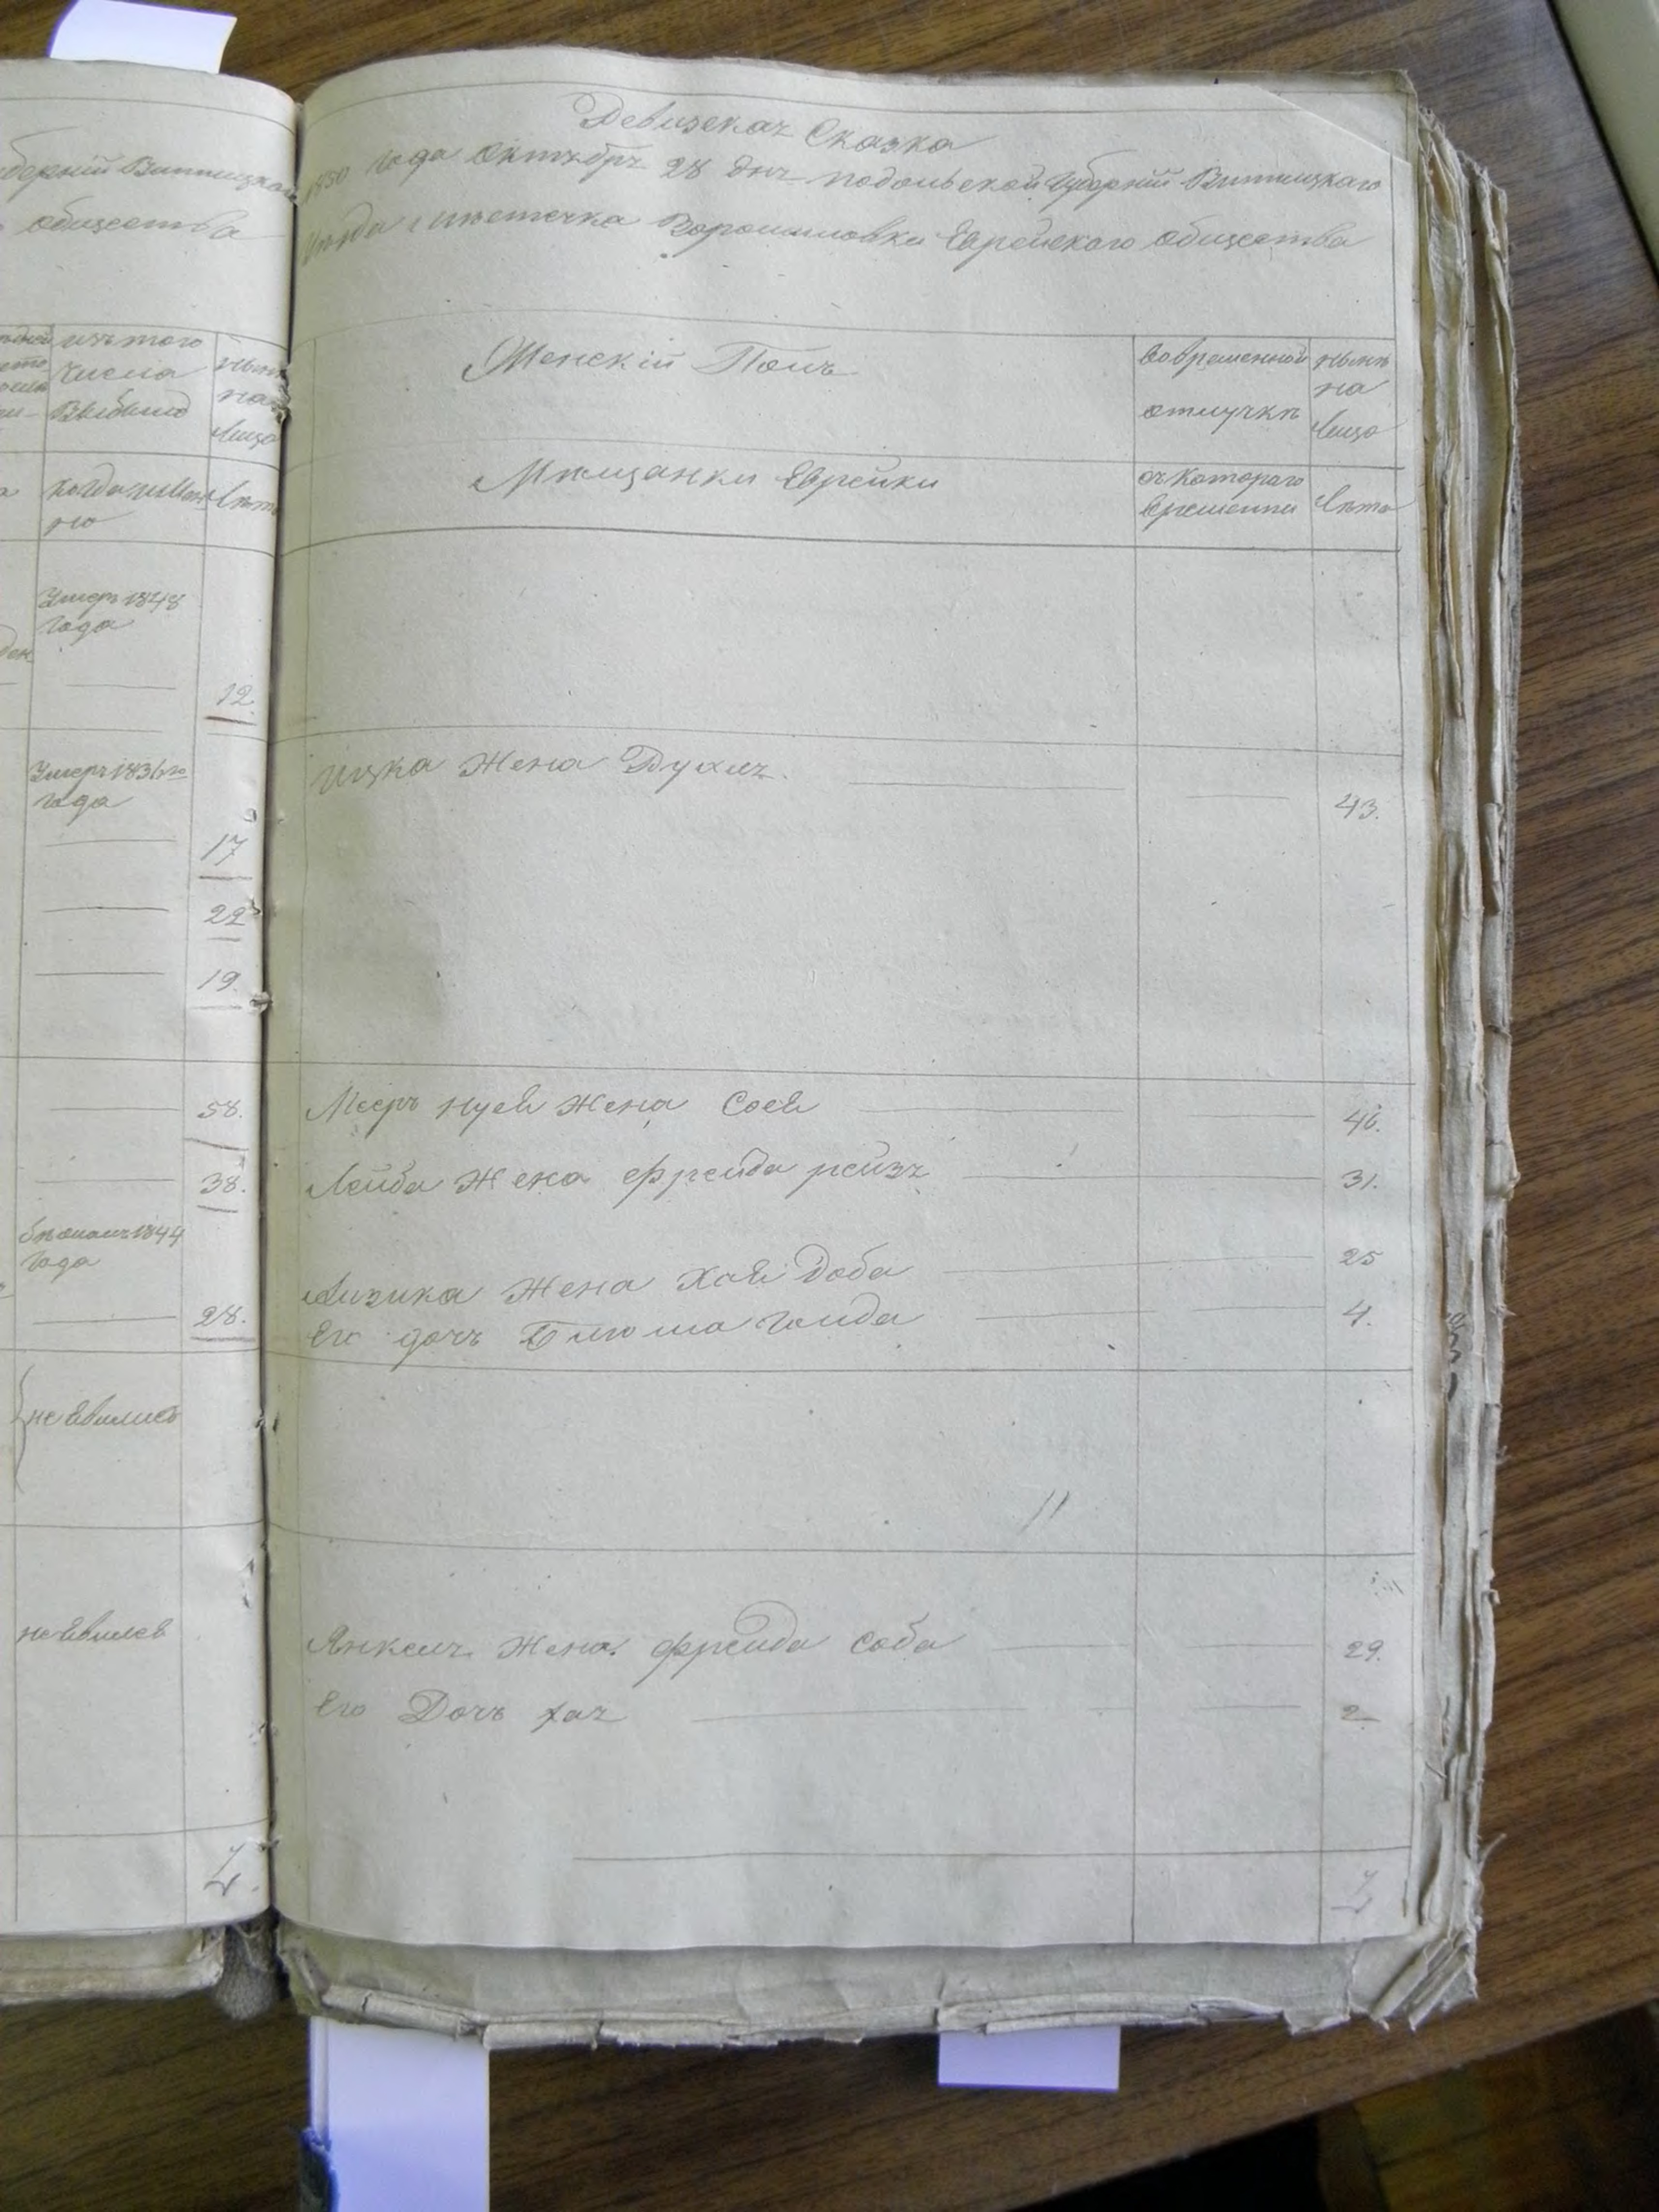 губерніи Винницкаго
общества
изъ того
числа
выбыло
нынѣ
на
лицо
когда именно
лѣта
Умеръ 1848
года
12.
Умеръ 1836го
года
17
22
19.
58.
38.
1844
года
28.
не явились
не явился
Ревизская Сказка
1850 года Октября 28 дня подольской губерніи Винницкаго
уѣзда мѣстечка Ворошиловки Еврейского общества
Женскій Полъ
во временной
отлучкѣ
нынѣ
на
лицо
Мѣщанки Еврейки
съ котораго
времени
лѣта
Ицка жена Духля 43.
Мееръ жена Сося 46.
Лейба жена Фрейда рейзя 31.
Аизика жена Хая доба 25
Его дочь Блюма голда 4.
Янкель жена фрейда соба 29.
Его Дочь хая 2